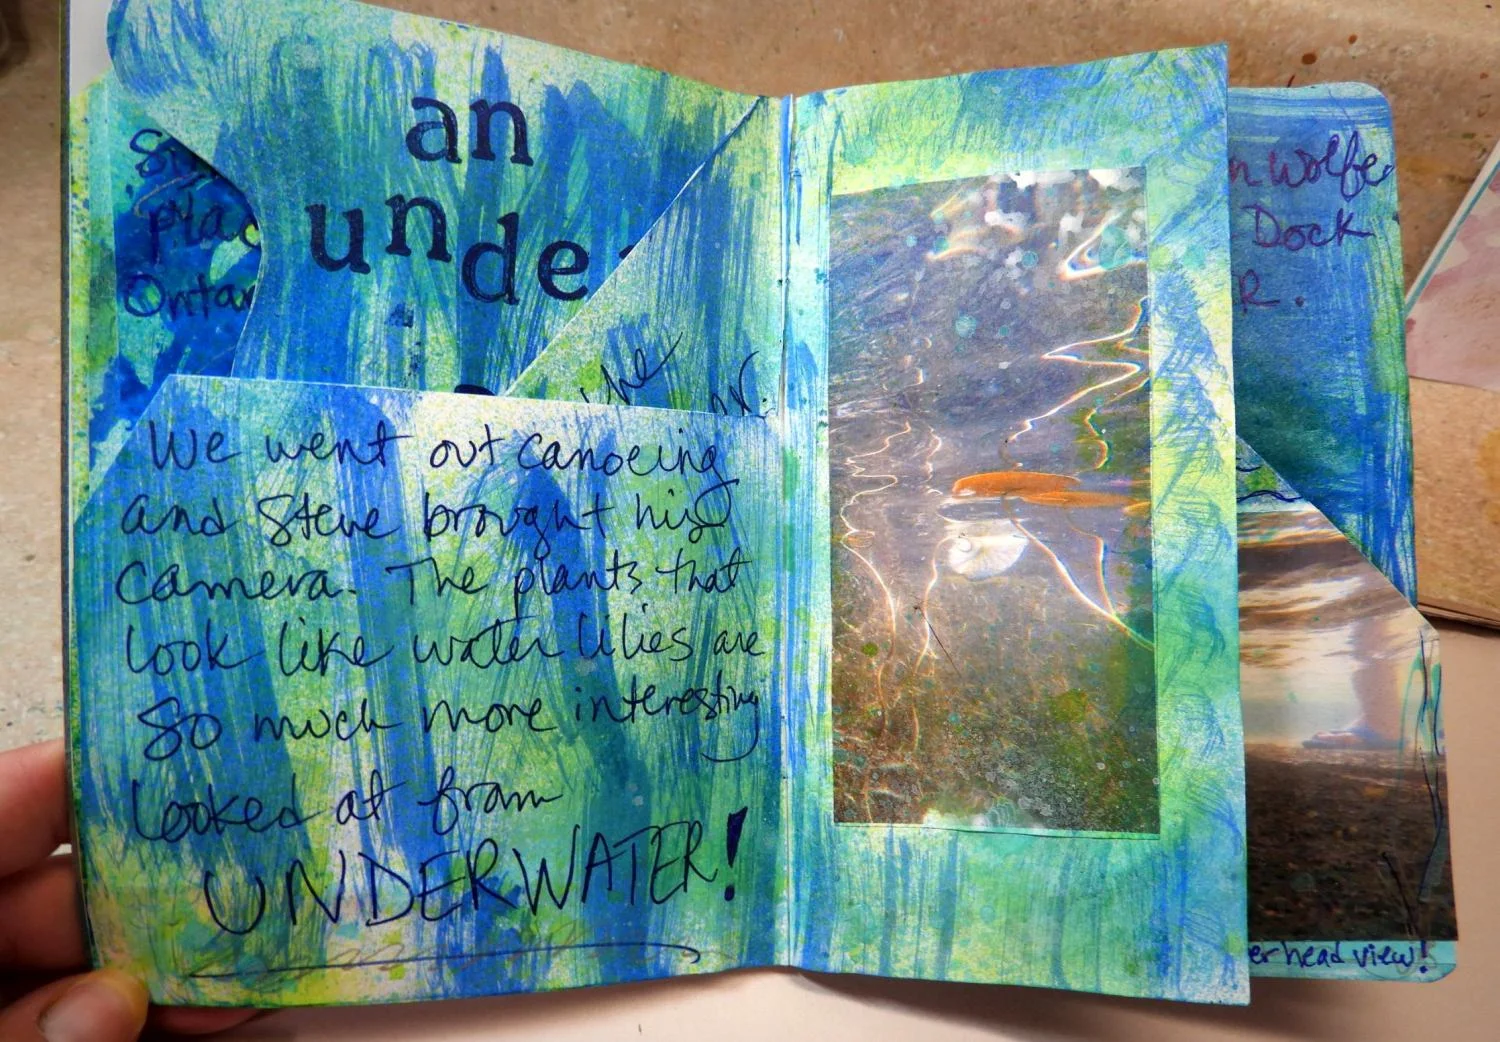 an
unde
the
We went out canoeing
and Steve brought his
camera. The plants that
look like water lilies are
so much more interesting
looked at from
UNDERWATER!
plac
Ontar
n Wolfe
Dock
R.
er head view!